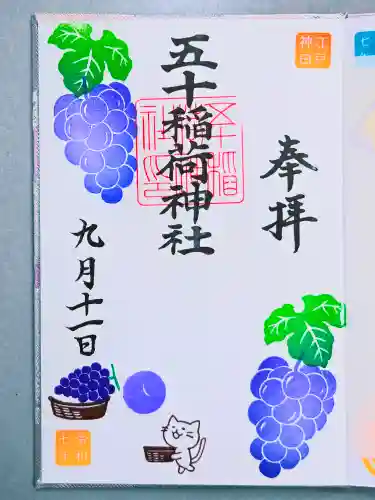 奉拝
五十稲荷神社
九月十一日
江戸
神田